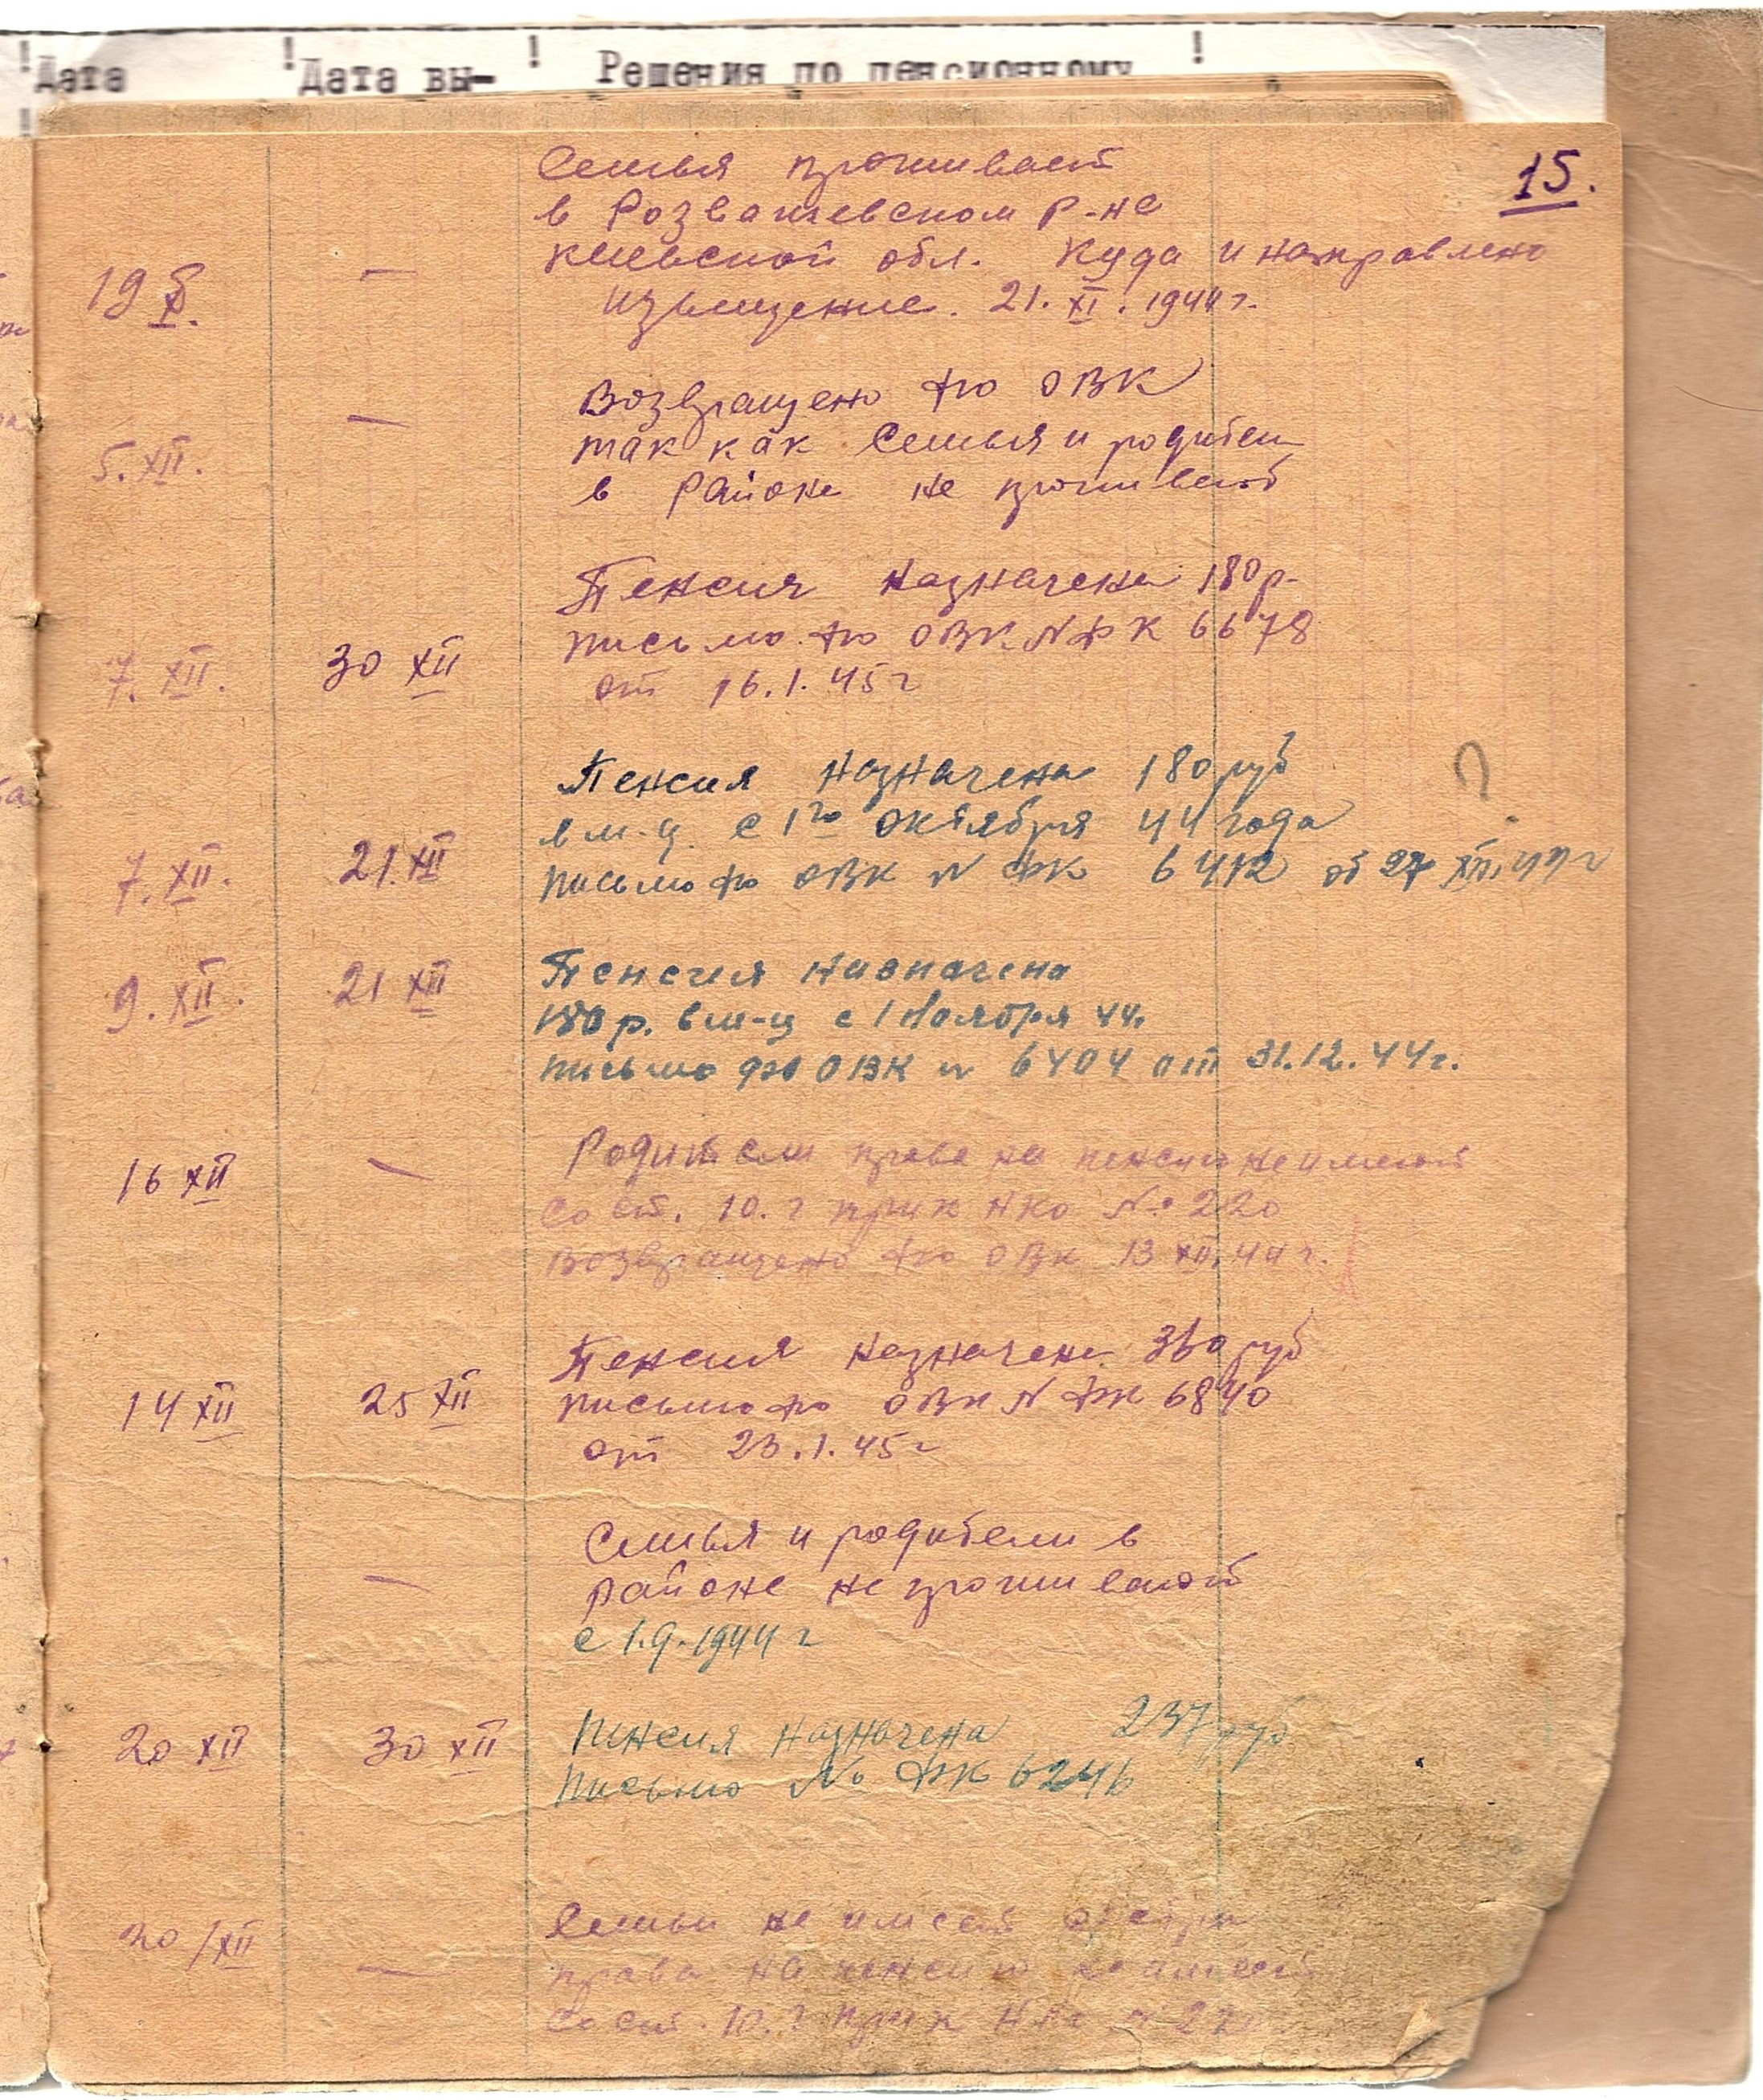 Дата Дата вы- Решения по пенсионному
15.
Семья проживает
в Розважевском р-не
Киевской обл. Куда и направлено
19 X. —
извещение. 21.XI.1944 г.
Возвращено фо ОВК
—
так как Семья и родители
5.XII.
в Районе не проживают
Пенсия назначена 180 р.
письмо фо ОВК N ФК 6678
7.XII. 30 XII
от 16.1.45 г
Пенсия назначена 180 руб
?
в м-ц с 1го октября 44 года
7.XII. 21.XII
письмо фо ОВК N ФК 6412 от 27 XII.44 г
Пенсия назначена
9.XII. 21 XII
180 р. в м-ц с 1 ноября 44.
письмо фо ОВК N 6404 от 31.12.44 г.
Родители права на пенсию не имеют
16 XII —
со ст. 10. г прик НКО №: 220
Возвращено фо ОВК 13 XII.44 г.
Пенсия назначена 360 руб
14 XII 25 XII
письмо фо ОВК N ФК 6840
от 23.1.45 г
Семья и родители в
— районе не проживают
с 1.9.1944 г
Пенсия назначена 237 руб
20 XII 30 XII
Письмо № ФК 6246
Семьи не имеет
20/XII
— права на пенсию не имеют
со ст. 10. г прик НКО N